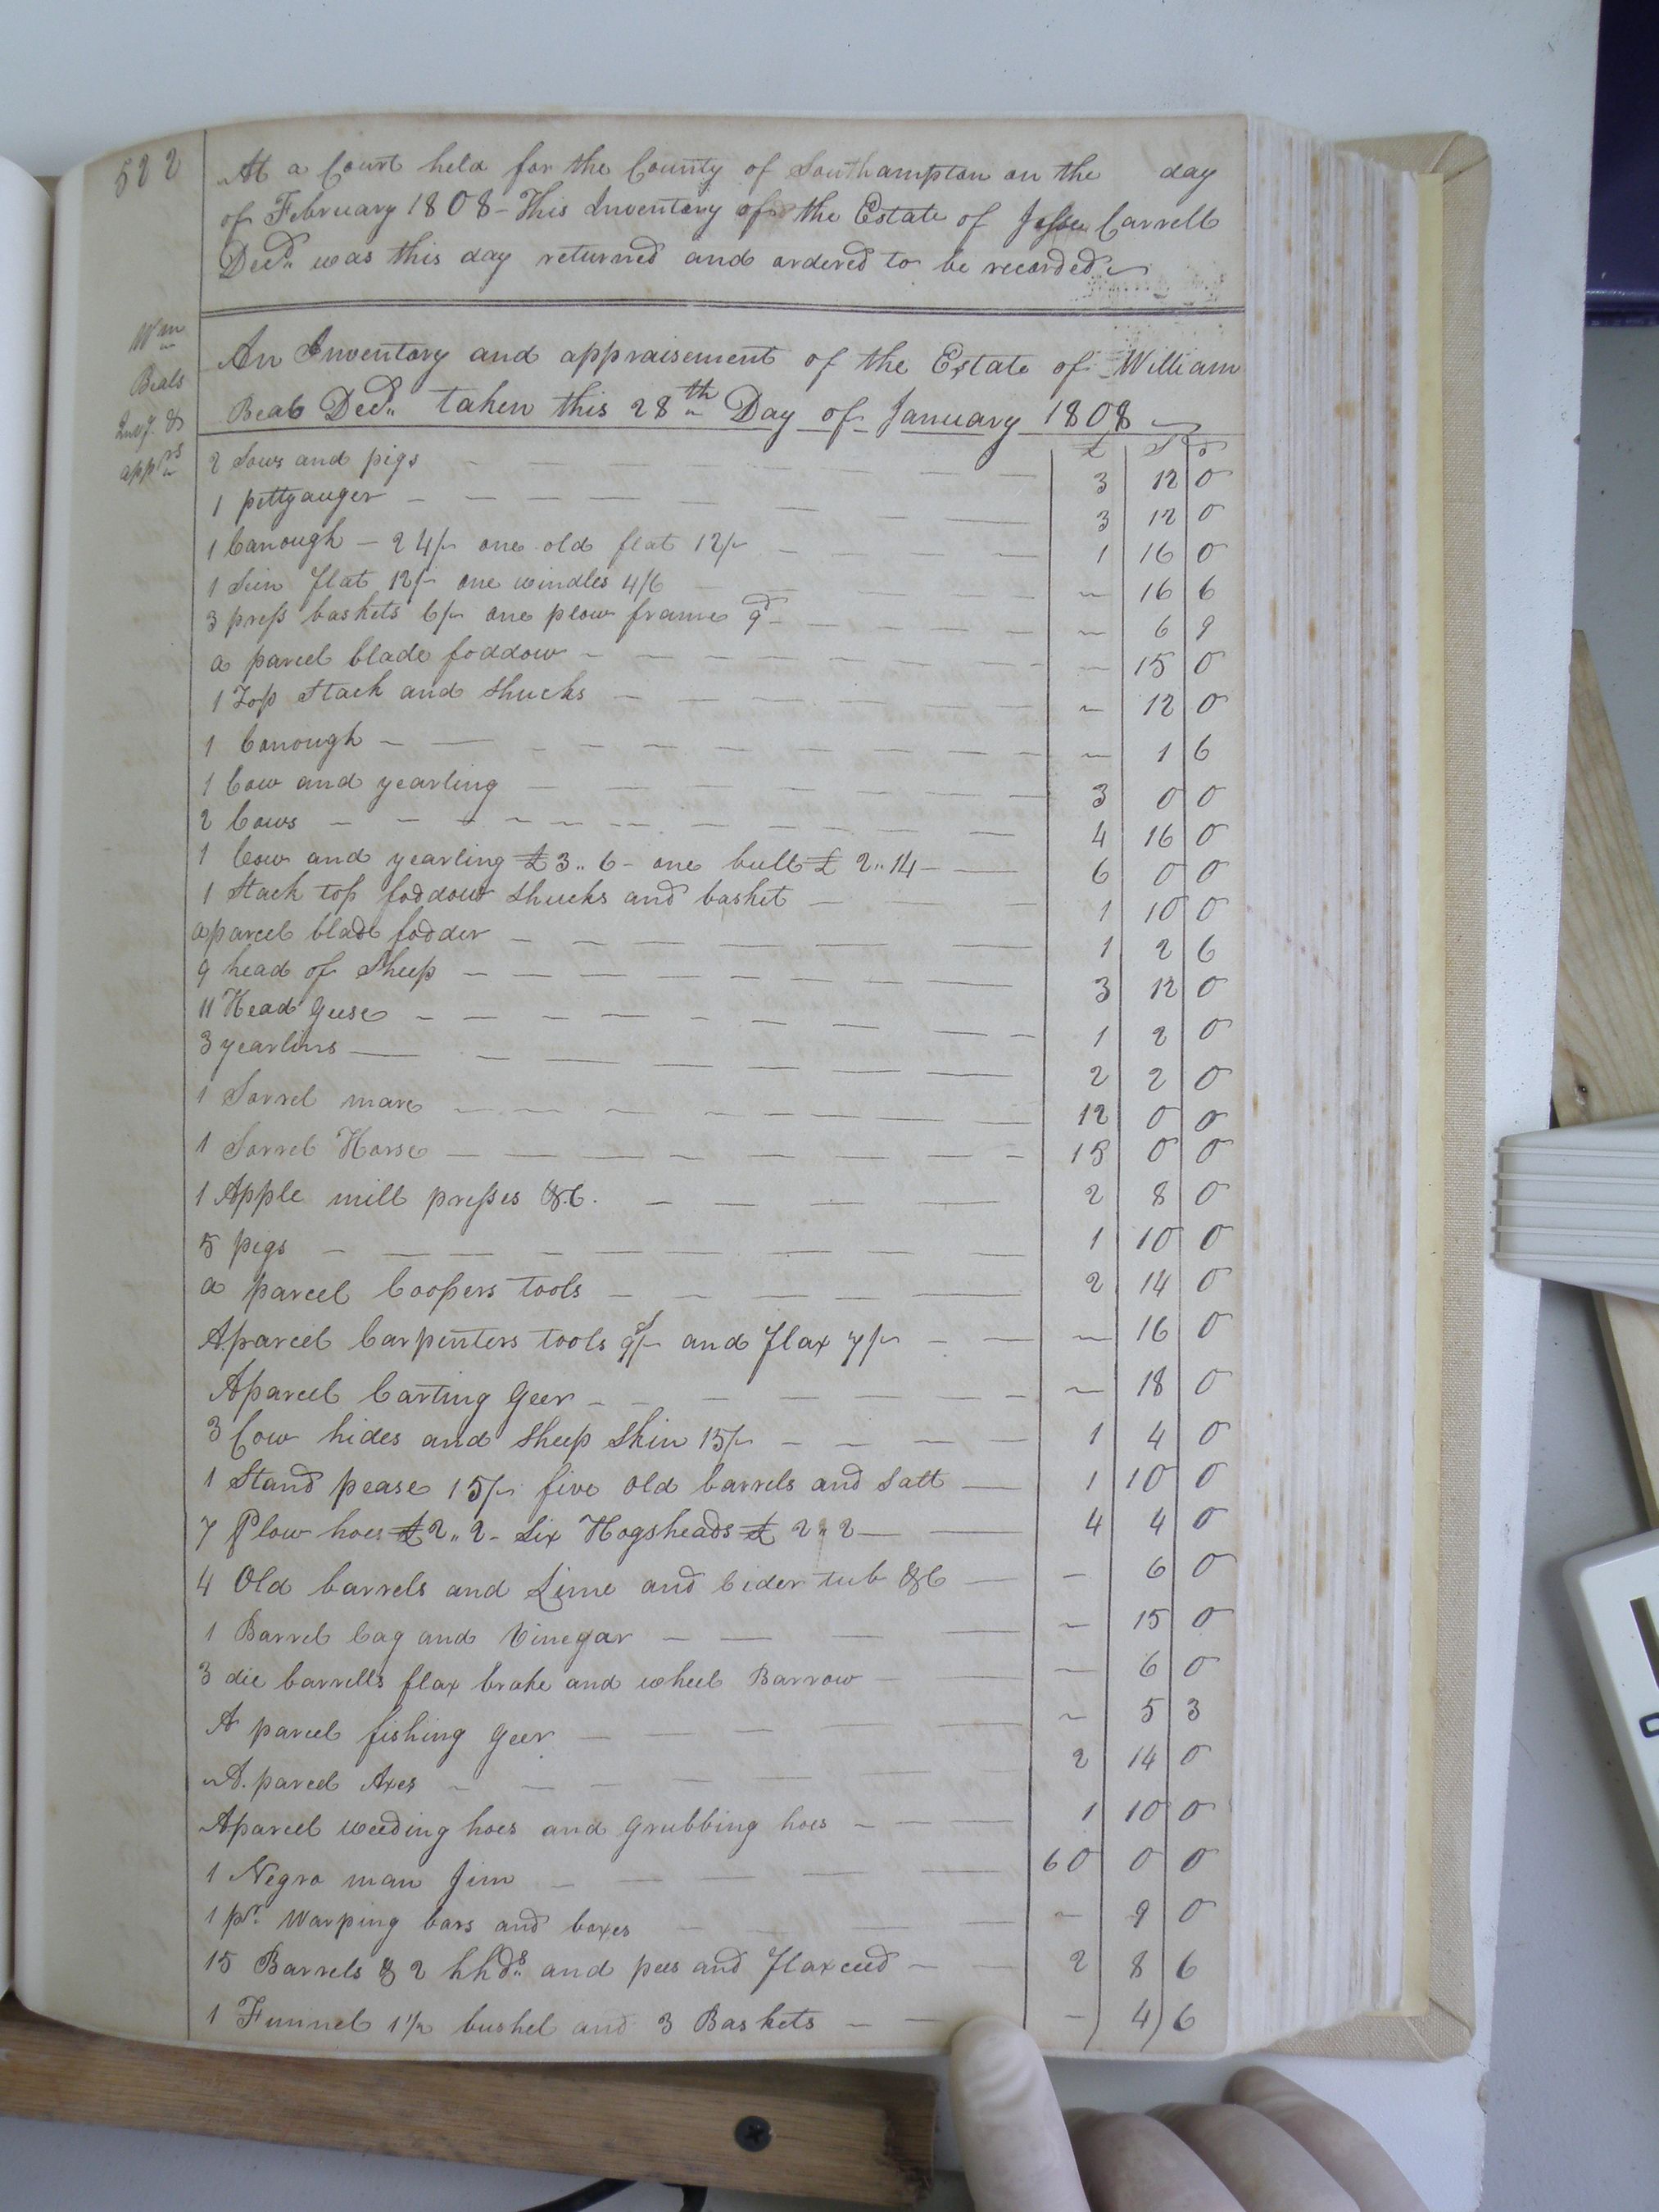 522
At a Court held for the County of Southampton on the day
of February 1808 - This Inventory of the Estate of Jesse Carrell
Decd. was this day returned and ordered to be recorded
Wm
Beals
Invy. &
apprs
An Inventory and appraisement of the Estate of William
Beals Decd. taken this 28th Day of January 1808
£ S d
2 Sows and pigs 3 12 0
1 pettyauger 3 12 0
1 Canough - 24/- one old flat 12/- 1 16 0
1 Sein flat 12/- one windles 4/6 ~ 16 6
3 press baskets 6/- one plow frame 9d ~ 6 9
a parcel blade foddow ~ 15 0
1 Top Stack and shucks ~ 12 0
1 Canough ~ 1 6
1 Cow and yearling 3 0 0
2 Cows 4 16 0
1 Cow and yearling £3..6 - one bull £2..14 - 6 0 0
1 Stack top foddow shucks and basket 1 10 0
a parcel blade fodder 1 2 6
9 head of Sheep 3 12 0
11 Head Geese 1 2 0
3 yearlins 2 2 0
1 Sorrel mare 12 0 0
1 Sorrel Horse 15 0 0
1 Apple mill presses &C. 2 8 0
5 pigs 1 10 0
a parcel Coopers tools 2 14 0
A parcel Carpenters tools 9/- and flax 7/- ~ 16 0
A parcel Carting Geer ~ 18 0
3 Cow hides and sheep skin 15/- 1 4 0
1 Stand pease 15/- five old barrels and Salt 1 10 0
7 Plow hoes £2..2 - Six Hogsheads £2..2 4 4 0
4 Old barrels and Lime and Cider tub &C - 6 0
1 Barrel Cag and Vinegar ~ 15 0
3 die barrells flax brake and wheel Barrow ~ 6 0
A parcel fishing Geer ~ 5 3
A. parcel Axes 2 14 0
A parcel weeding hoes and Grubbing hoes 1 10 0
1 Negro man Jim 60 0 0
1 pr. Warping bars and boxes - 9 0
15 Barrels & 2 hhds. and pees and Flaxceed 2 8 6
1 Funnel 1 1/2 bushel and 3 Baskets - 4 6